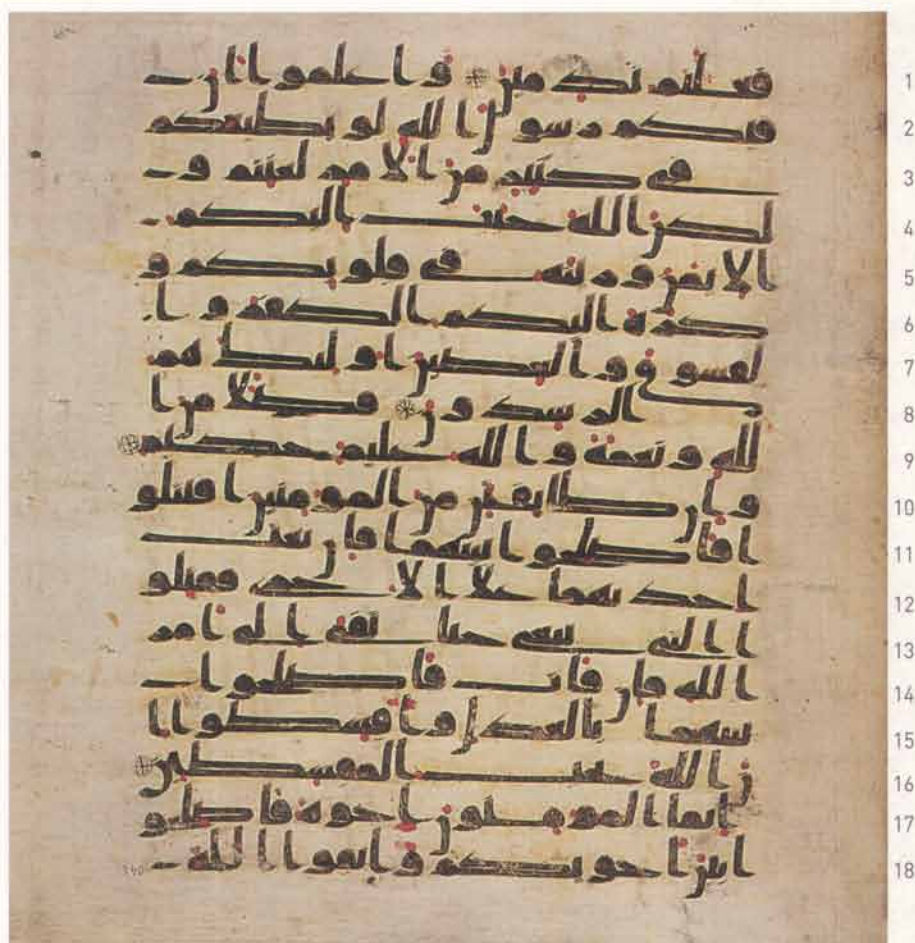 فعلتم ندمين واعلموا ان 1
فيكم رسول الله لو يطيعكم 2
في كثير من الامر لعنتم و 3
لكن الله حبب اليكم 4
الايمن وزينه في قلوبكم و 5
كره اليكم الكفر و ا 6
لفسوق والعصين اوليك هم 7
الرشدون فضلا من ا 8
لله ونعمة والله عليم حكيم 9
وان طايفتين من المومنين اقتتلو 10
ا فاصلحوا بينهما فان بغت 11
احديهما علا الاخرى فقتلو 12
ا التي تبغي حتا تفي الى امر 13
الله فان فات فاصلحوا 14
بينهما بالعدل واقسطوا ا 15
ن الله يحب المقسطين 16
انما المومنون اخوة فاصلحو 17
ا بين اخويكم واتقوا الله 18